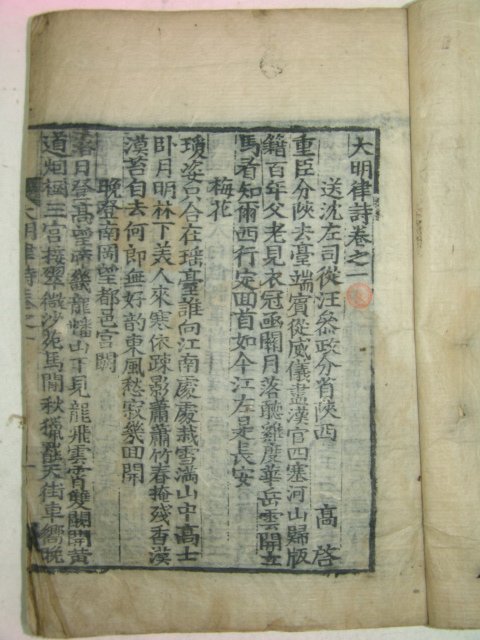 大明律詩卷之一
送沈左司從汪叅政分省陝西 高啓
重臣分陝去臺端賓從威儀盡漢官四塞河山歸版
籍百年父老見衣冠凾關月落聽雞度華岳雲開立
馬看知爾西行定囬首如今江左是長安
梅花
瓊姿只合在瑶臺誰向江南處處栽雪滿山中高士
卧月明林下美人來寒依踈影蕭蕭竹春掩殘香漠
漠苔自去何郎無好韵東風愁寂幾囬開
晚登南岡望都邑宮闕
日登高望帝畿龍蟠山下見龍飛雲霄雙闕開黃
道烟樹三宮接翠微沙苑馬閒秋獵罷天街車嚮晚
大明律詩卷之一